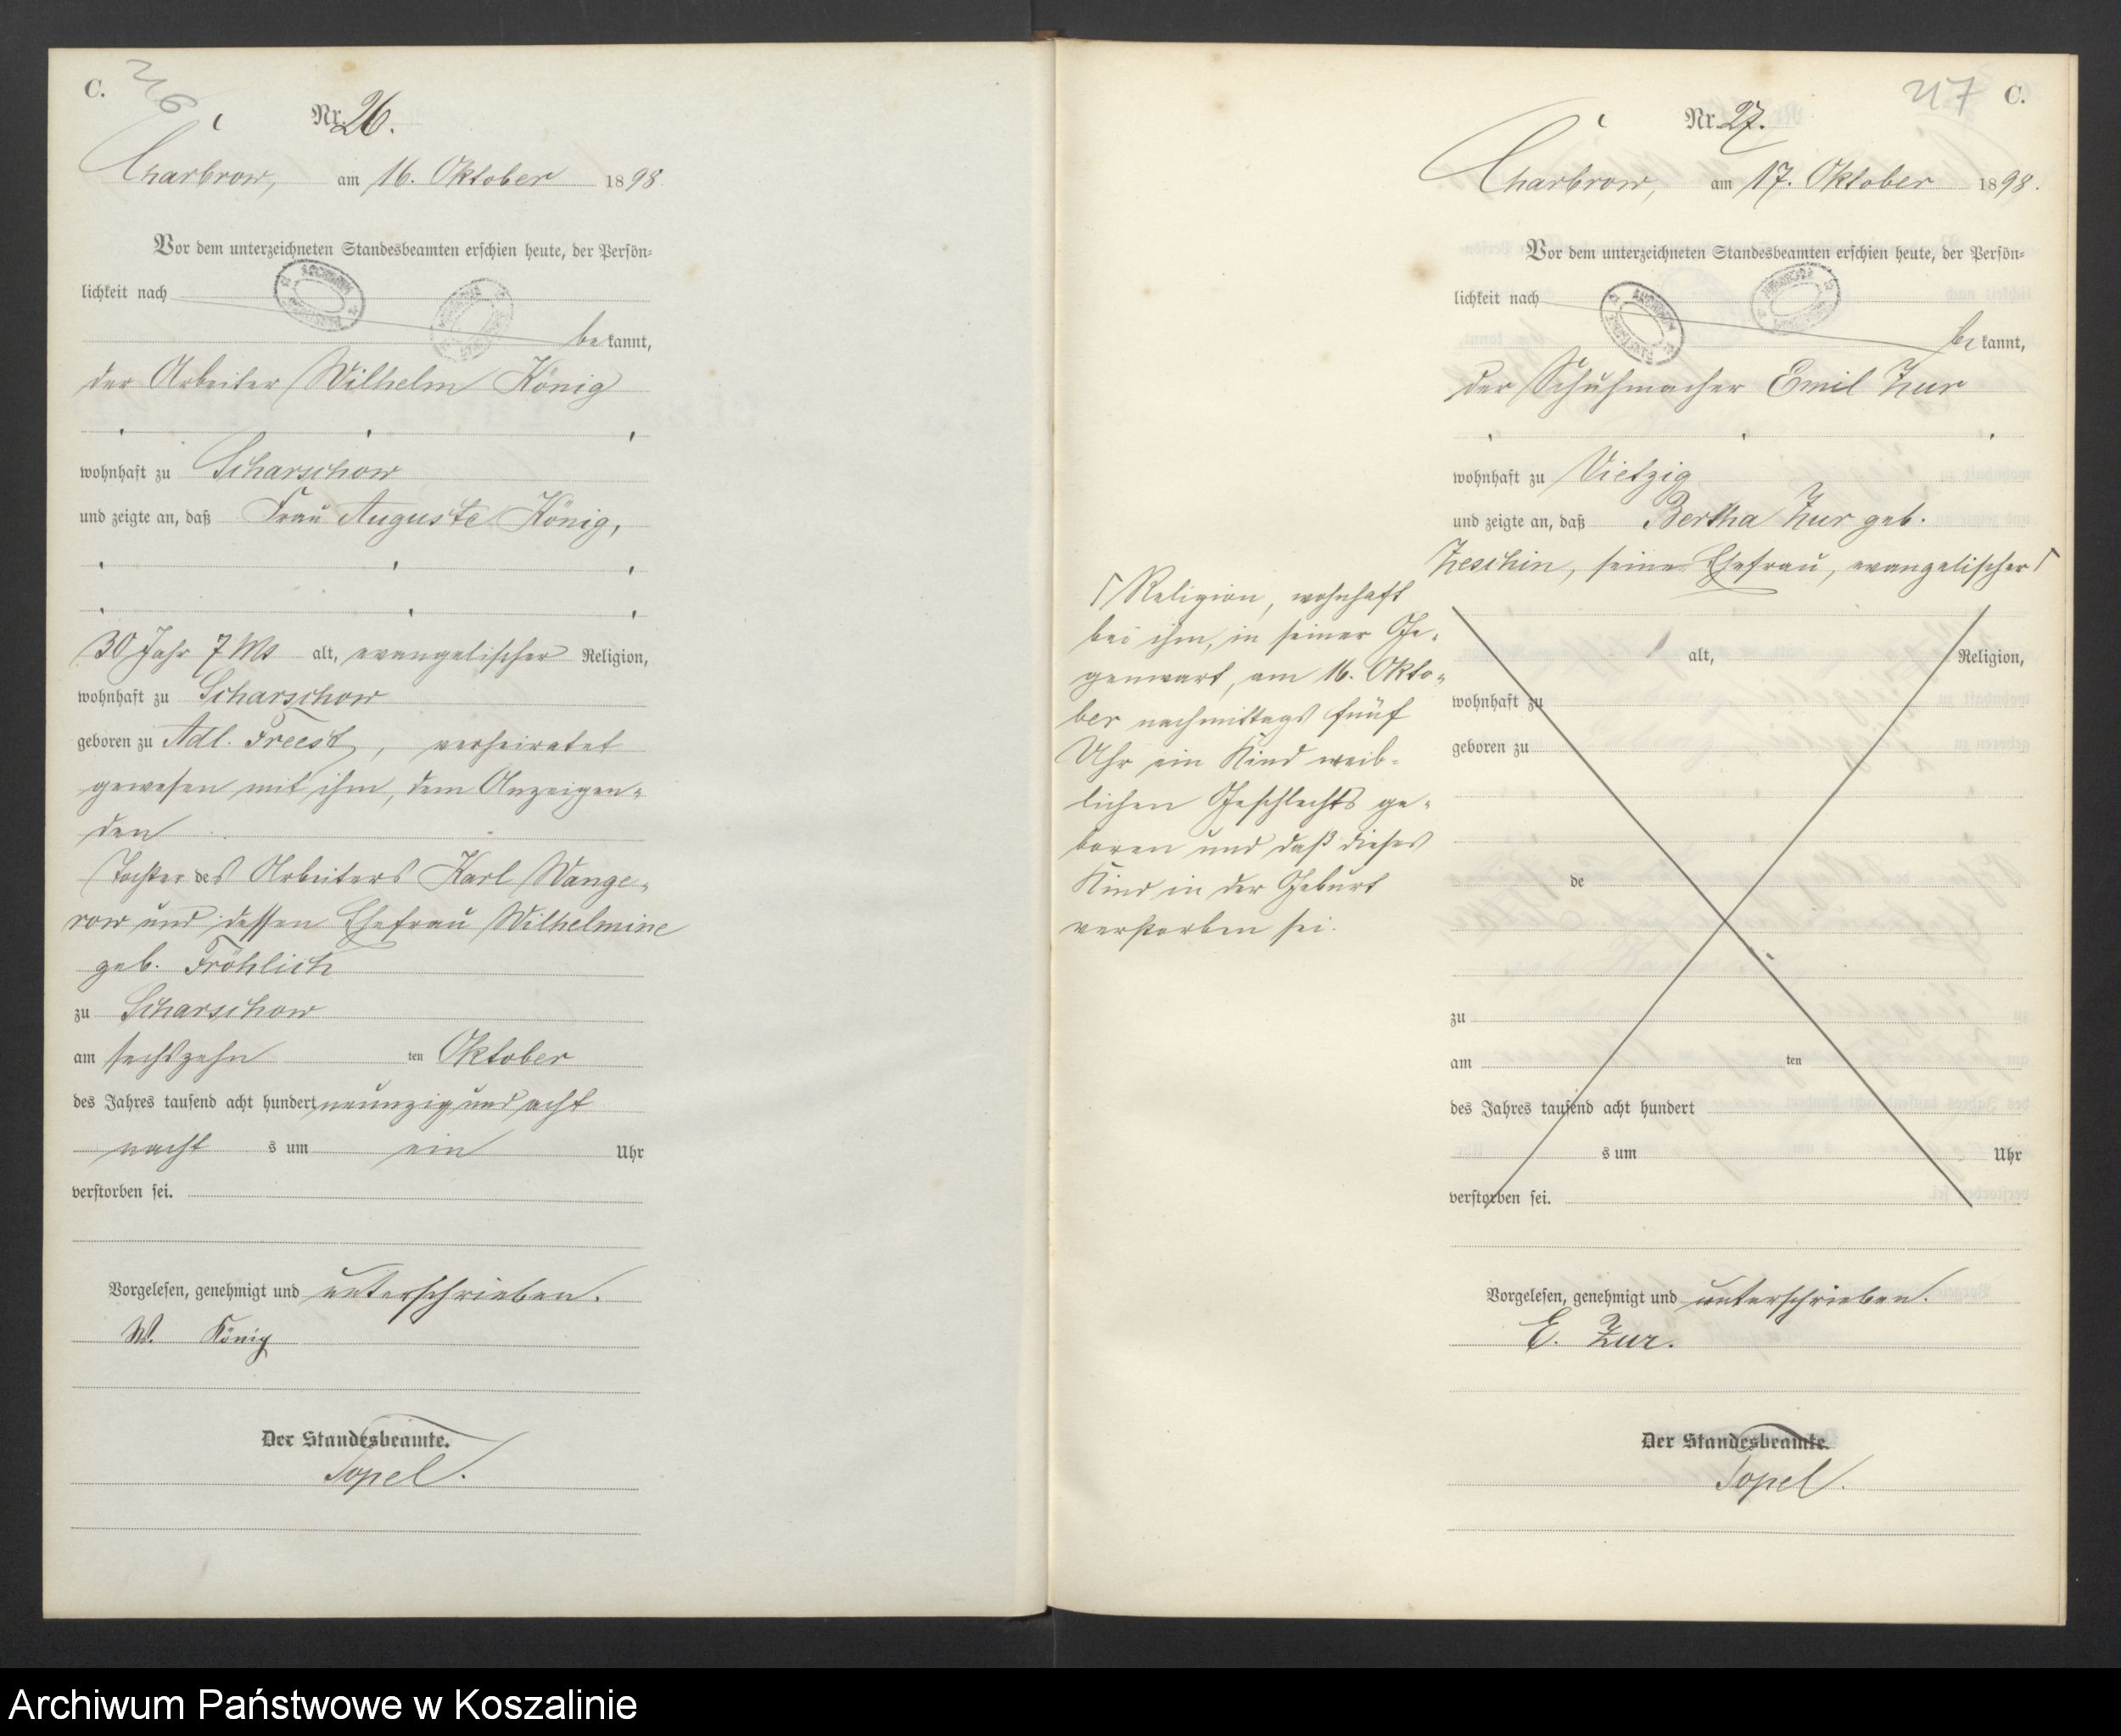 C.
26
Nr. 26.
Charbrow, am 16. Oktober 1898.
Vor dem unterzeichneten Standesbeamten erschien heute, der Persön-
lichkeit nach
bekannt,
der Arbeiter Wilhelm König
wohnhaft zu Scharschow
und zeigte an, daß Frau Auguste König,
30 Jahr 7 Mt alt, evangelischer Religion,
wohnhaft zu Scharschow
geboren zu Adl. Freest, verheiratet
gewesen mit ihm, dem Anzeigen-
den
Tochter des Arbeiters Karl Wange-
row und dessen Ehefrau Wilhelmine
geb. Fröhlich
zu Scharschow
am sechszehn ten Oktober
des Jahres tausend acht hundert neunzig und acht
nacht s um ein Uhr
verstorben sei.
Vorgelesen, genehmigt und unterschrieben.
W. König
Der Standesbeamte.
Topel.
27 C.
Nr. 27.
Charbrow, am 17. Oktober 1898.
Vor dem unterzeichneten Standesbeamten erschien heute, der Persön-
lichkeit nach
bekannt,
der Schuhmacher Emil Zur
wohnhaft zu Vietzig
und zeigte an, daß Bertha Zur geb.
Zeschin, seine Ehefrau, evangelischer
Religion, wohnhaft
bei ihm, in seiner Ge-
genwart, am 16. Okto-
ber nachmittags fünf
Uhr ein Kind weib-
lichen Geschlechts ge-
boren und daß dieses
Kind in der Geburt
verstorben sei.
alt, Religion,
wohnhaft zu
geboren zu
de
zu
am ten
des Jahres tausend acht hundert
s um Uhr
verstorben sei.
Vorgelesen, genehmigt und unterschrieben.
E. Zur.
Der Standesbeamte.
Topel.
Archiwum Państwowe w Koszalinie